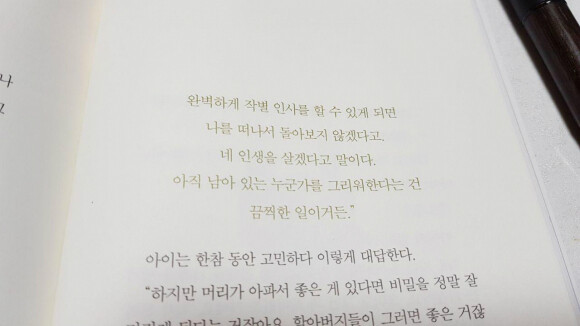 나
고
완벽하게 작별 인사를 할 수 있게 되면
나를 떠나서 돌아보지 않겠다고.
네 인생을 살겠다고 말이다.
아직 남아 있는 누군가를 그리워한다는 건
끔찍한 일이거든.”
아이는 한참 동안 고민하다 이렇게 대답한다.
“하지만 머리가 아파서 좋은 게 있다면 비밀을 정말 잘
지키게 된다는 거잖아요. 할아버지들이 그러면 좋은 거잖